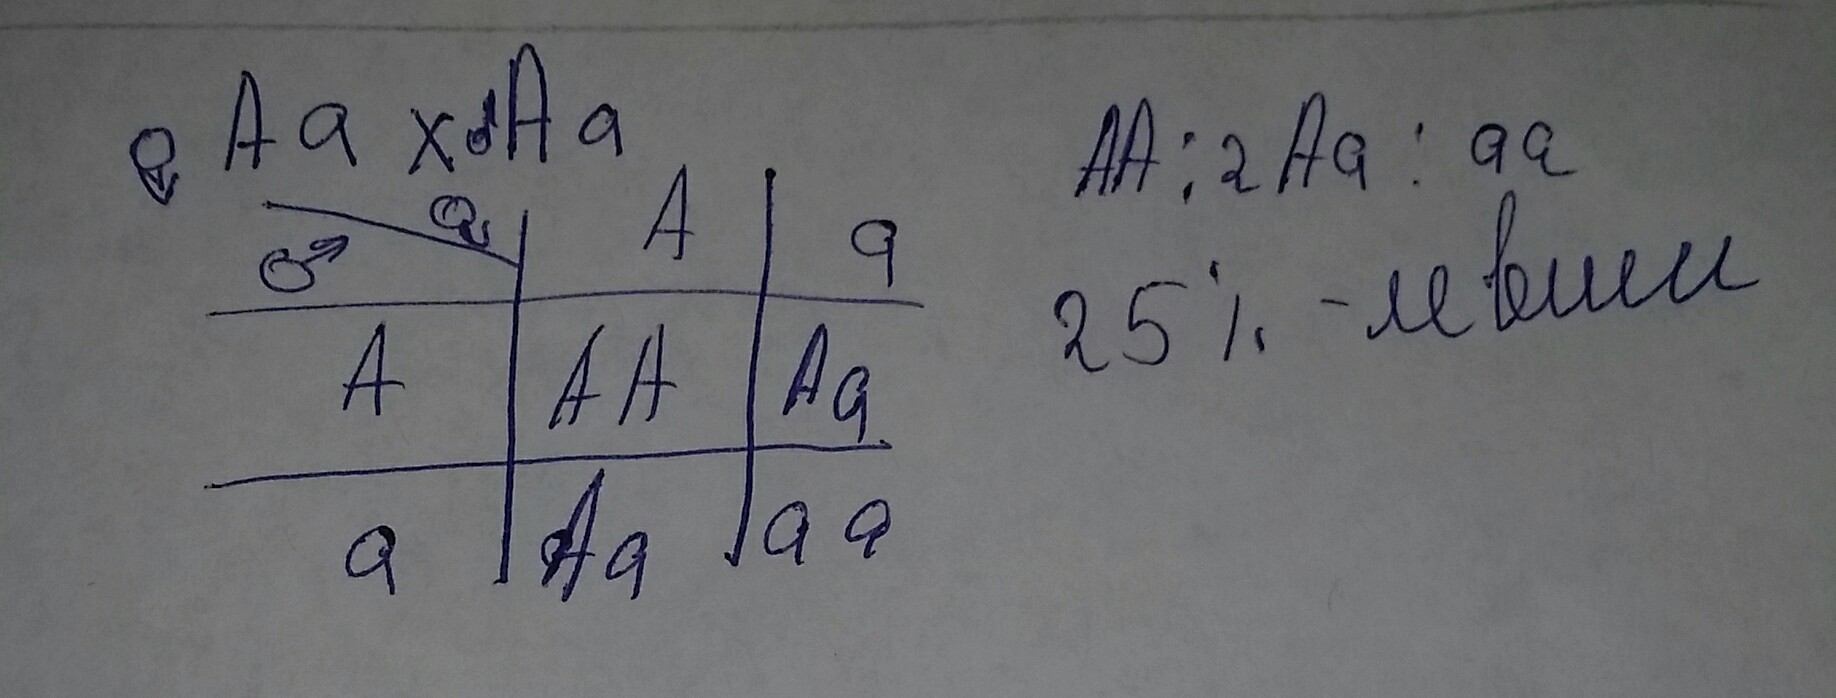 ♀ Aa x ♂ Aa
♂ ♀ A a
A AA Aa
a Aa aa
AA : 2Aa : aa
25% - левши